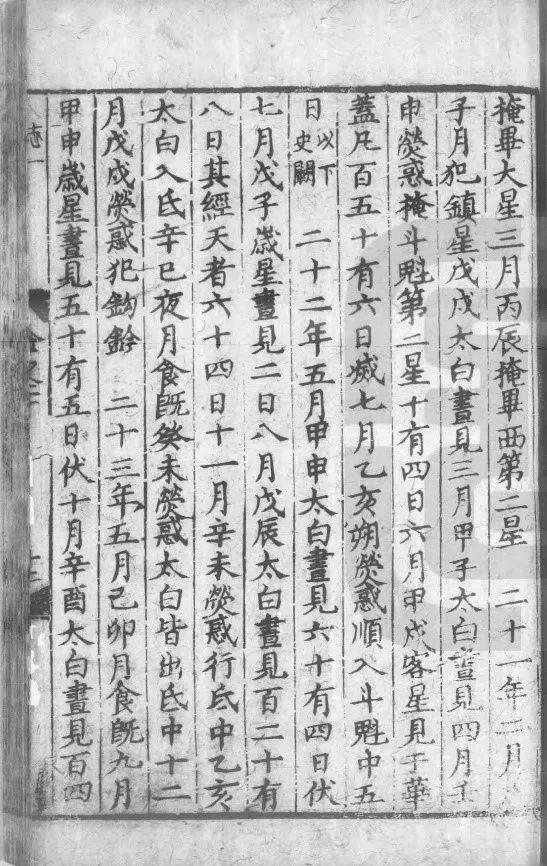 掩畢大星三月丙辰掩畢西第二星　二十一年二月
子月犯鎮星戊戌太白晝見三月甲子太白晝見四月壬
申熒惑掩斗魁第二星十有四日六月甲戌客星見于華
蓋凡百五十有六日滅七月乙亥朔熒惑順入斗魁中五
日以下史闕　二十二年五月甲申太白晝見六十有四日伏
七月戊子歲星晝見二日八月戊辰太白晝見百二十有
八日其經天者六十四日十一月辛未熒惑行氐中乙亥
太白入氐辛巳夜月食既癸未熒惑太白皆出氐中十二
月戊戌熒惑犯鈎鈐　二十三年五月己卯月食既九月
甲申歲星晝見五十有五日伏十月辛酉太白晝見百四
志一